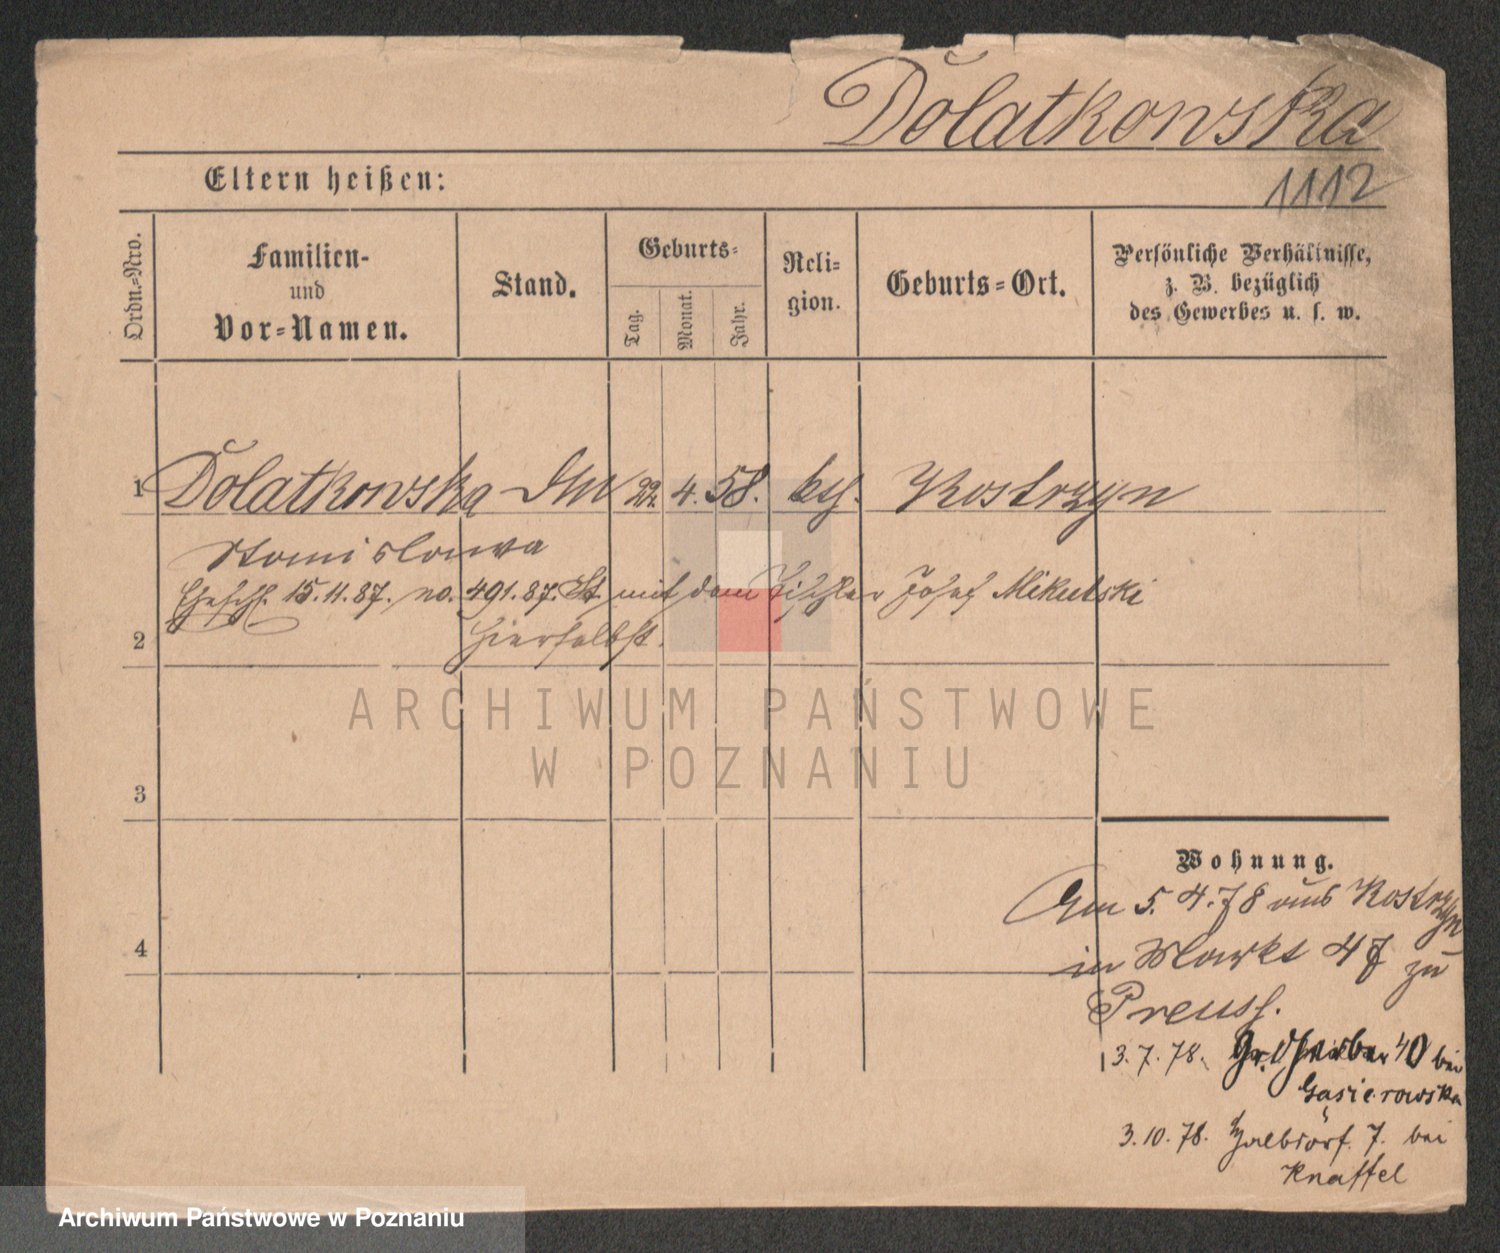 Dolatkowska
Eltern heißen:
1112
Ordn.-Nro.
Familien-
und
Vor-Namen.
Stand.
Geburts-
Tag.
Monat.
Jahr.
Reli-
gion.
Geburts-Ort.
Persönliche Verhältnisse,
z. B. bezüglich
des Gewerbes u. s. w.
1 Dolatkowska 22. 4. 58. kth. Kostrzyn
Stanislawa
Ehesch. 15.11.87. no. 491.87. St. mit dem Tischler Josef Mikulski
2 hierselbst.
ARCHIWUM PAŃSTWOWE
W POZNANIU
3
Wohnung.
Am 5. 4. 78 aus Kostrzyn
4
in Markt 47 zu
Preuss.
3. 7. 78. Gr. Gerber 40 bei
Gąsierowska
3. 10. 78. Halbdorf. 7. bei
Knaffel
Archiwum Państwowe w Poznaniu